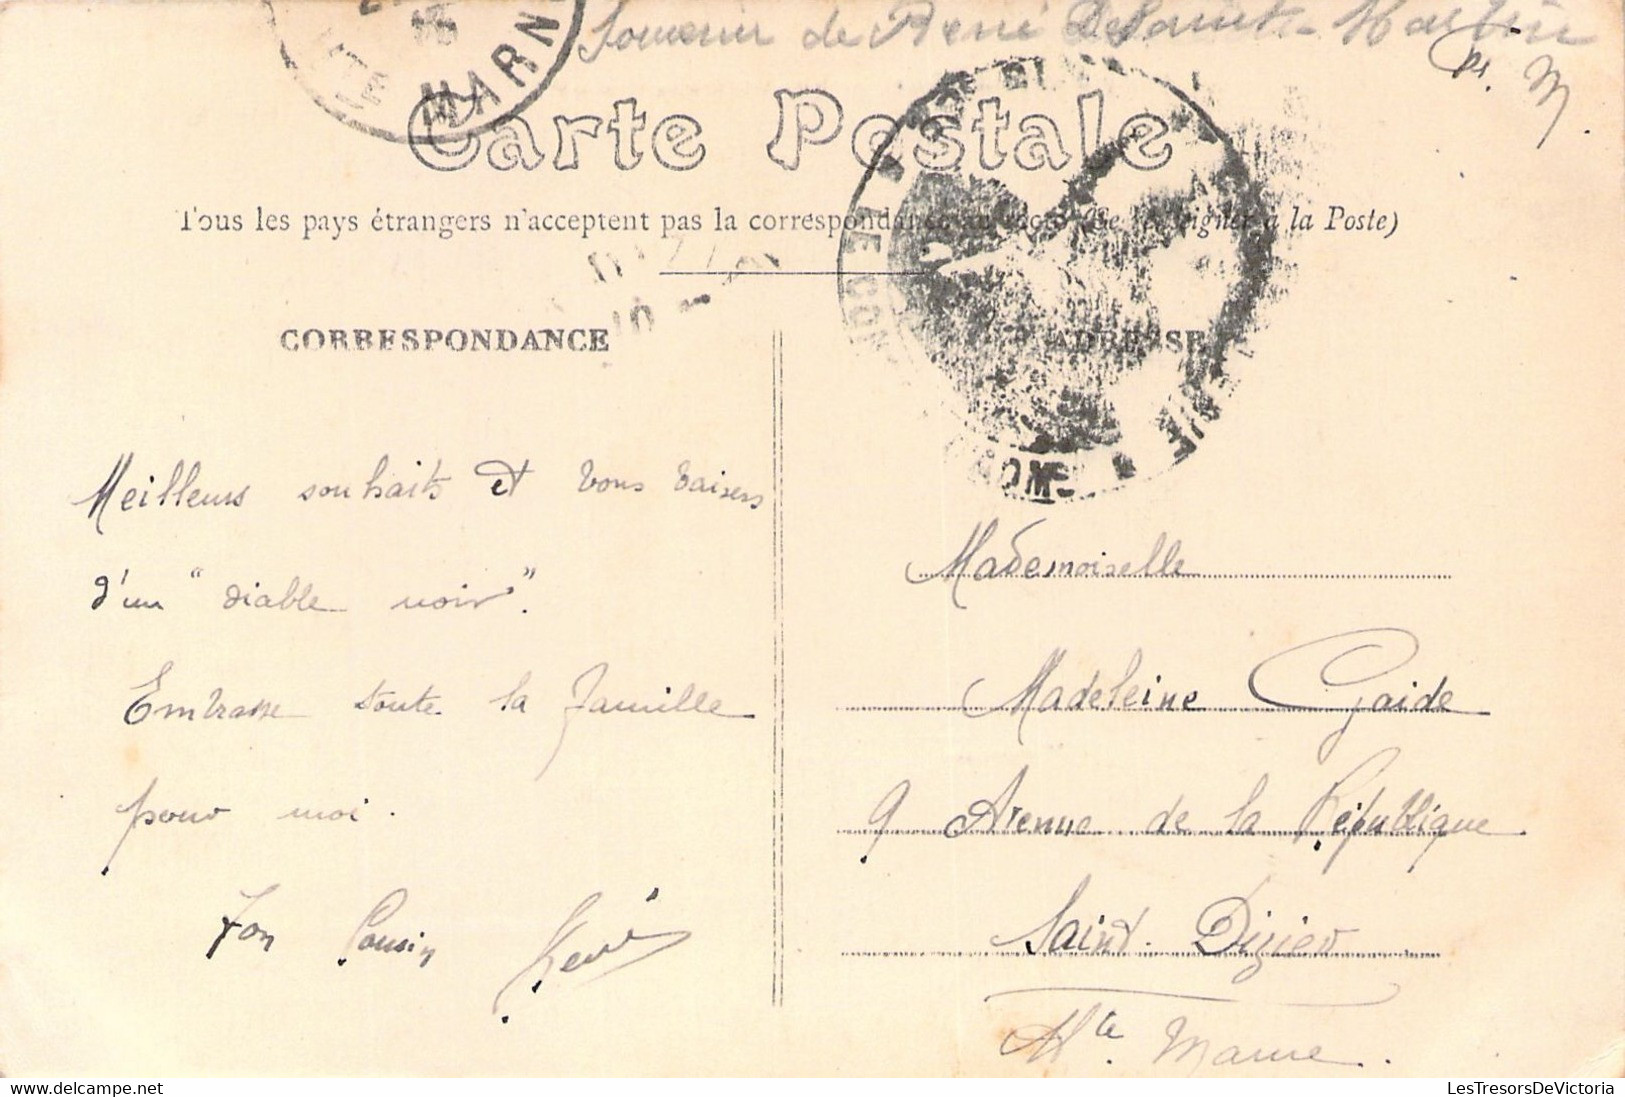 MARN
Souvenir de René De Saint-Martin
M.
Carte Postale
Tous les pays étrangers n'acceptent pas la correspondance au recto (Se renseigner à la Poste)
CORRESPONDANCE
ADRESSE
Meilleurs souhaits et bons baisers
d'un "diable noir".
Embrasse toute la famille
pour moi.
Ton Cousin René
Mademoiselle
Madeleine Gaide
9 Avenue de la République
Saint-Dizier
Hte Marne.
LesTresorsDeVictoria